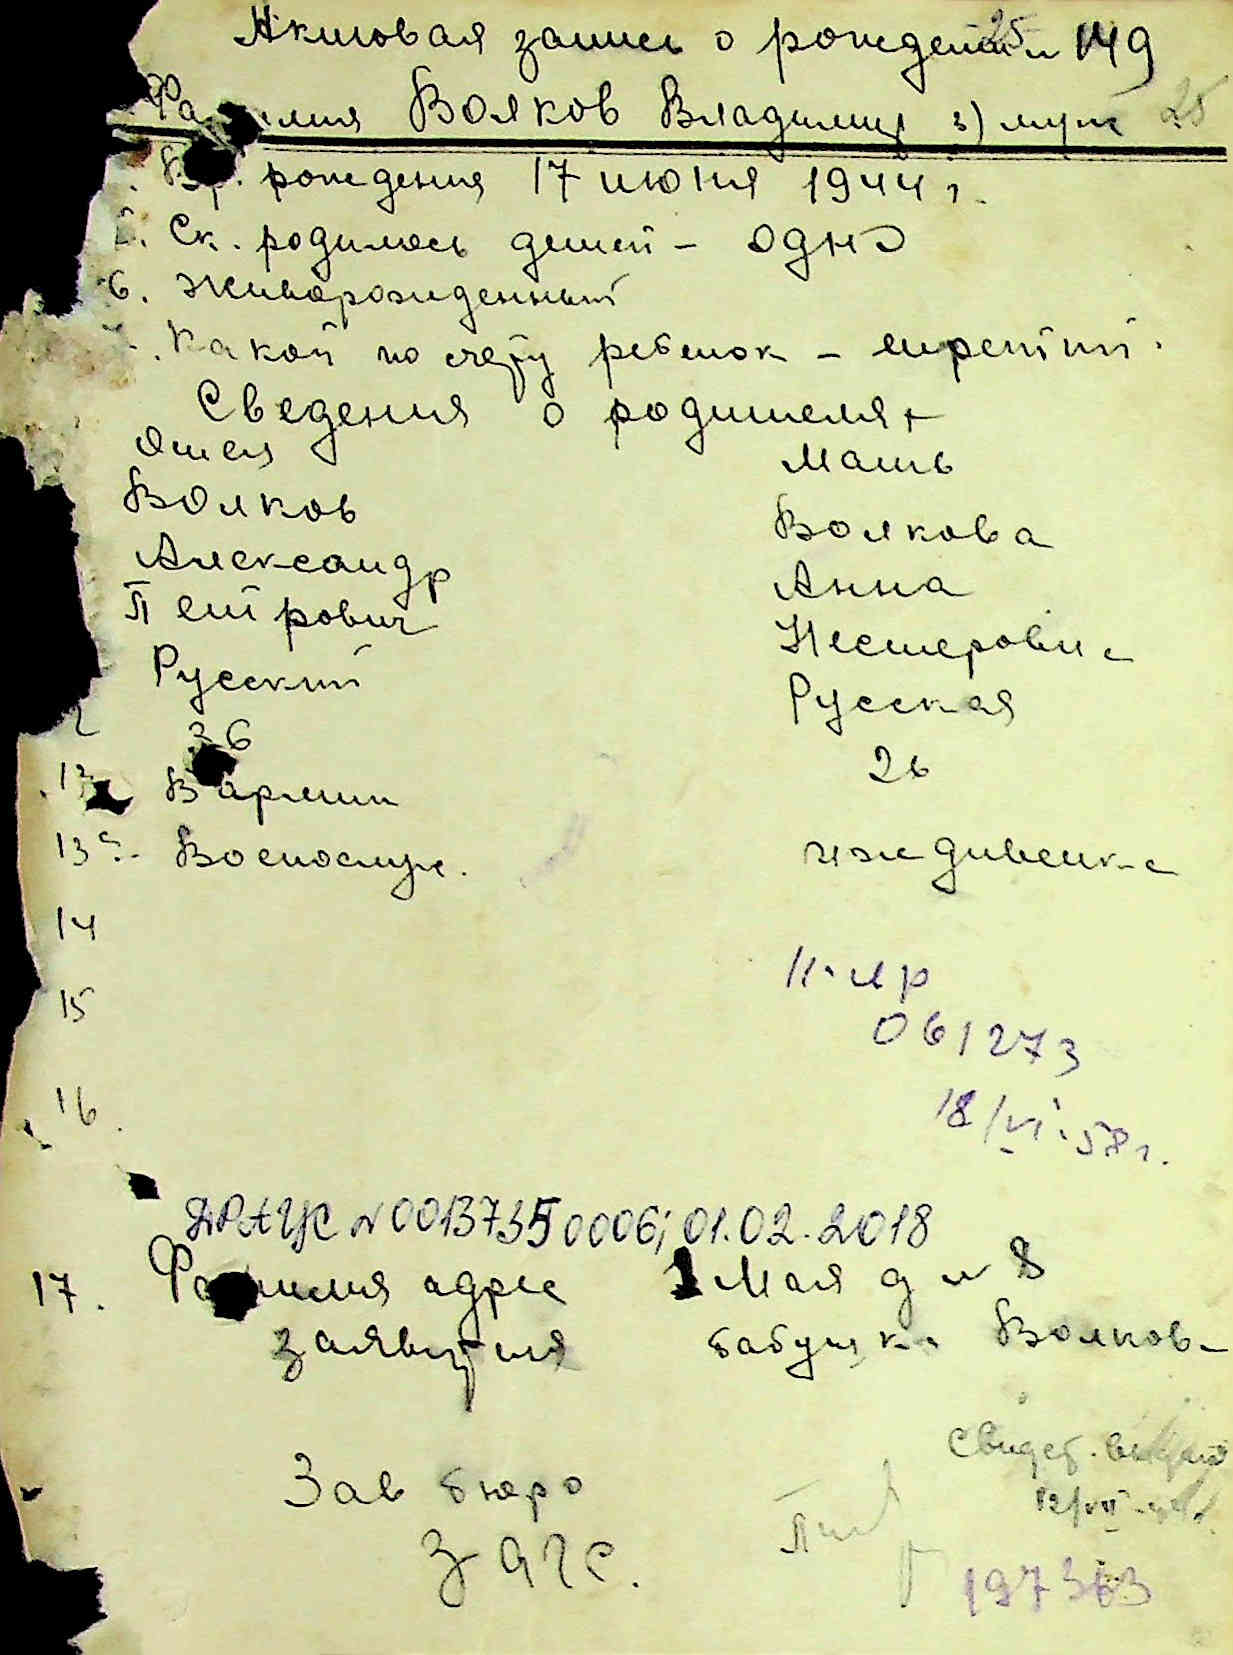 Актовая запись о рождении 149
25
Фа илия Волков Владимир 3) муж 25
Вр. рождения 17 июня 1944 г.
5. Ск. родилось детей - одно
6. Живорожденный
7. Какой по счету ребенок - третий.
Сведения о родителях
Отец Мать
Волков Волкова
Александр Анна
Петрович Нестеровна
Русский Русская
2 36 26
13. В армии
13а. Военнослуж. иждивенка
14
15
16.
061273
18/VI.58 г.
ДРАЦС N 00137350006; 01.02.2018
17. Фамилия адрес 1 Мая д N 8
заявителя бабушка Волкова
Зав бюро
загс.
Свидет. выдано
197363